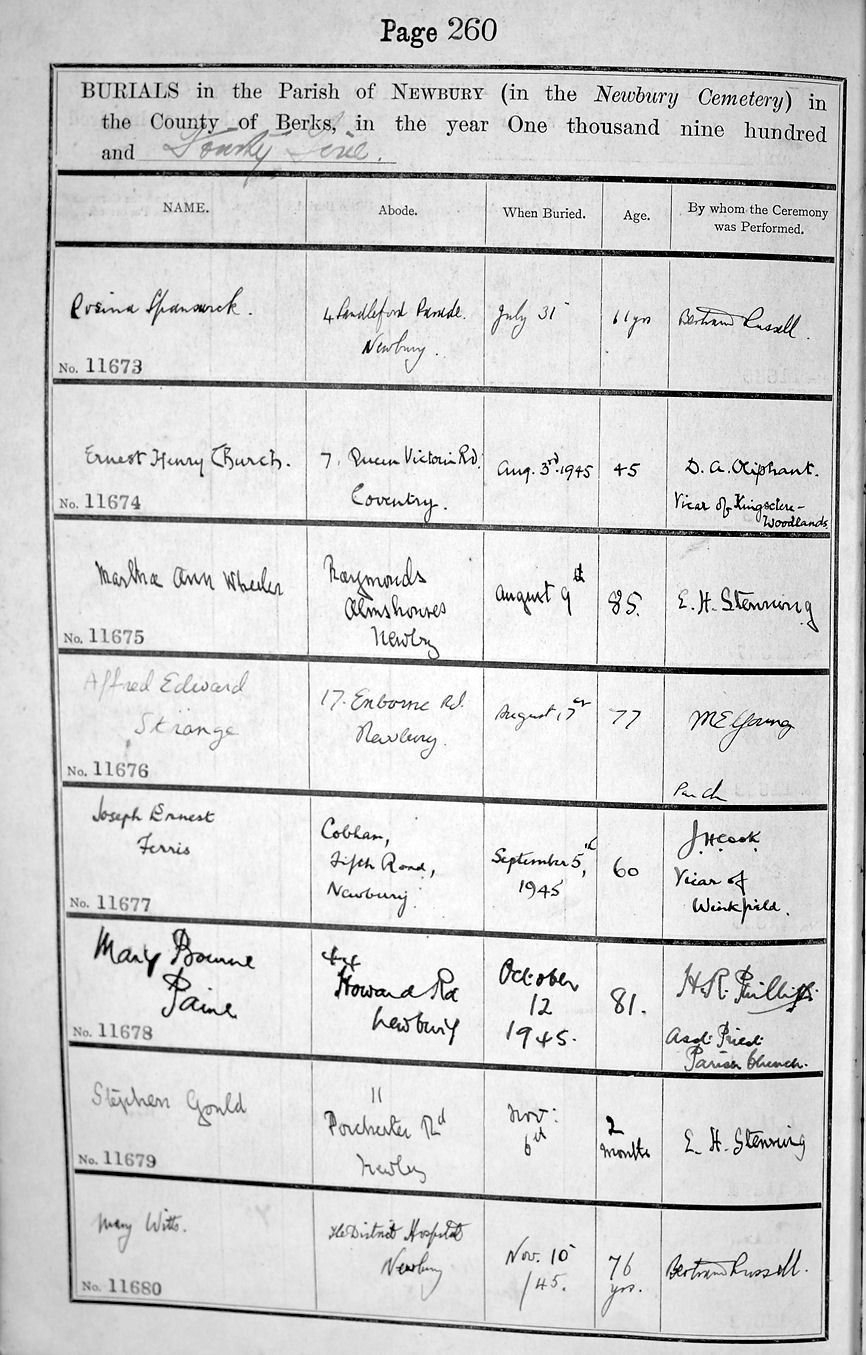 Page 260
BURIALS in the Parish of NEWBURY (in the Newbury Cemetery) in
the County of Berks, in the year One thousand nine hundred
and Fourty Five.
NAME.
Abode.
When Buried.
Age.
By whom the Ceremony
was Performed.
Rosina Spanswick.
4 Sandleford Parade.
Newbury.
July 31
61 yrs
Bertram Russell.
No. 11673
Ernest Henry Church.
7. Queen Victoria Rd.
Coventry.
Aug. 3rd. 1945
45
D. A. Oliphant.
Vicar of Kingsclere-
Woodlands
No. 11674
Martha Ann Wheeler
Raymonds
Almshouses
Newbry
August 9th
85.
E. H. Stenning
No. 11675
Alfred Edward
Strange
17. Enborne Rd.
Newbury.
August 17
77
M E Young
No. 11676
Joseph Ernest
Ferris
Cobham,
Fifth Road,
Newbury.
September 5th,
1945
60
J. H. Cook
Vicar of
Winkfield.
No. 11677
Mary Bourne
Paine
44
Howard Rd
Newbury
October
12
1945.
81.
H. R. Phillips
Asst: Priest:
Parish Church.
No. 11678
Stephen Gould
11
Porchester Rd
Newbry
Nov:
6th
2
months
E. H. Stenning
No. 11679
Mary Witts.
The District Hospital
Newbury
Nov. 10
/45.
76
yrs.
Bertram Russell.
No. 11680